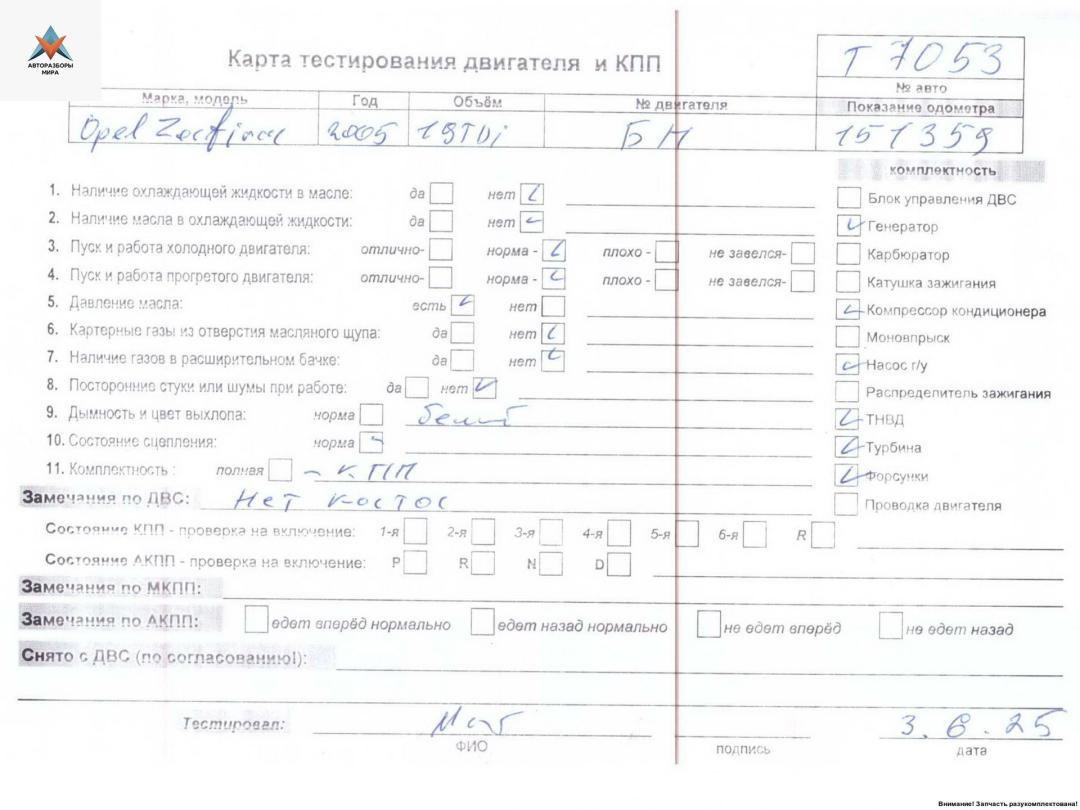 АВТОРАЗБОРЫ
МИРА
Карта тестирования двигателя и КПП
T 7053
№ авто
Марка, модель Год Объём № двигателя Показание одометра
Opel Zafira 2005 1.9TDi БН 151359
комплектность
1. Наличие охлаждающей жидкости в масле: да нет
Блок управления ДВС
2. Наличие масла в охлаждающей жидкости: да нет
Генератор
3. Пуск и работа холодного двигателя: отлично- норма - плохо - не завелся-
Карбюратор
4. Пуск и работа прогретого двигателя: отлично- норма - плохо - не завелся-
Катушка зажигания
5. Давление масла: есть нет
Компрессор кондиционера
6. Картерные газы из отверстия масляного щупа: да нет
Моновпрыск
7. Наличие газов в расширительном бачке: да нет
Насос г/у
8. Посторонние стуки или шумы при работе: да нет
Распределитель зажигания
9. Дымность и цвет выхлопа: норма
ТНВД
10. Состояние сцепления: норма
Турбина
11. Комплектность : полная - КПП
Форсунки
Замечания по ДВС: Нет
Проводка двигателя
Состояние КПП - проверка на включение: 1-я 2-я 3-я 4-я 5-я 6-я R
Состояние АКПП - проверка на включение: P R N D
Замечания по МКПП:
Замечания по АКПП: едет вперёд нормально едет назад нормально не едет вперёд не едет назад
Снято с ДВС (по согласованию!):
Тестировал: 3.6.25
ФИО подпись дата
Внимание! Запчасть разукомплектована!